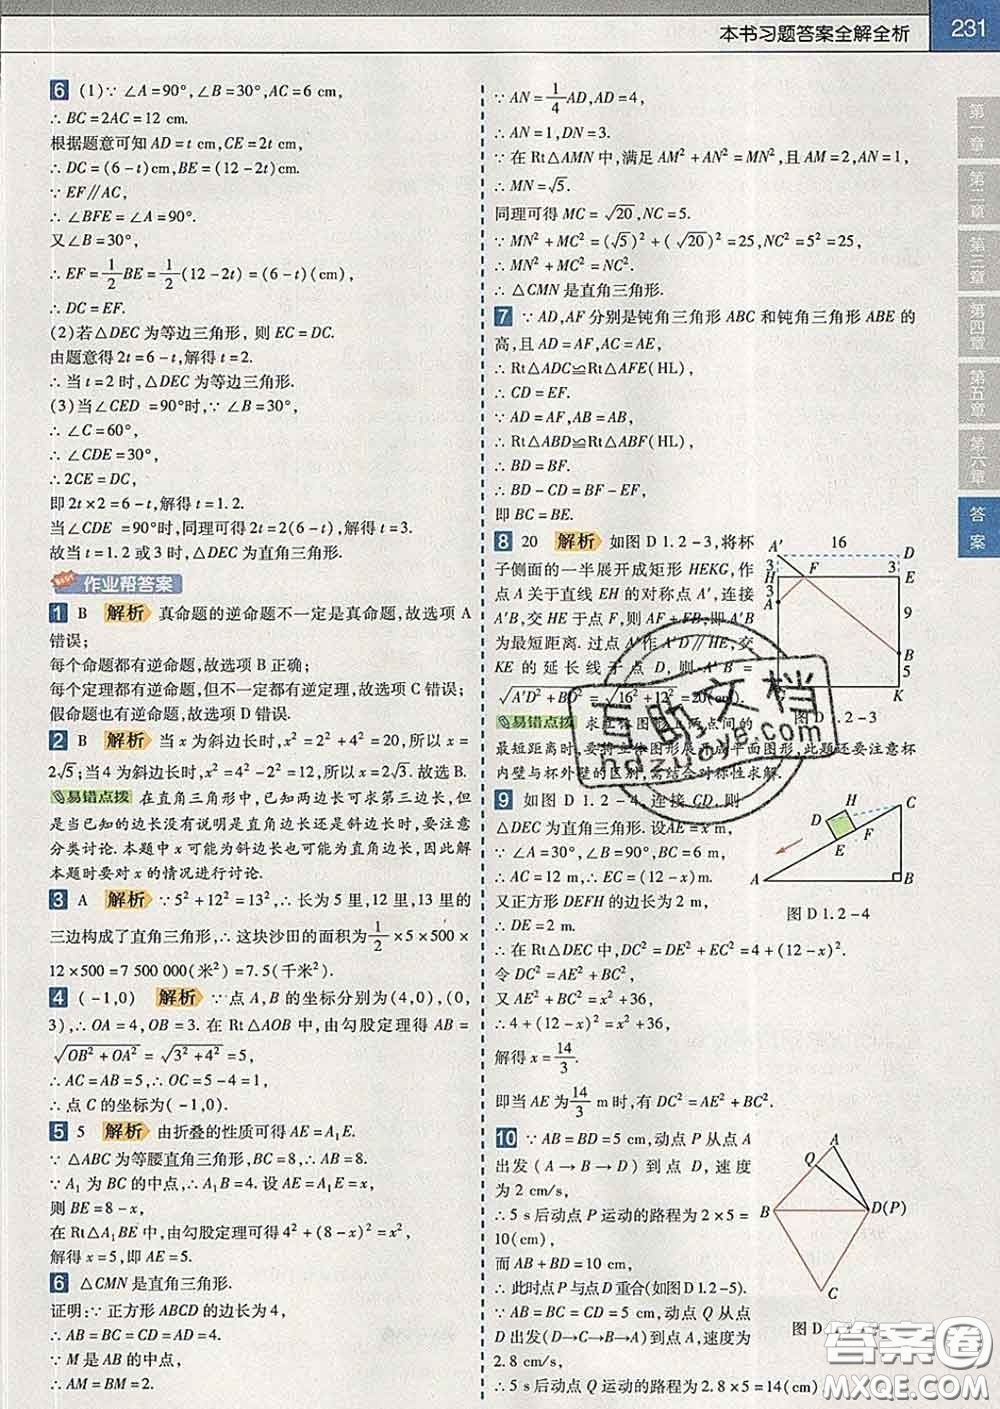 本书习题答案全解全析
231
6 (1)∵∠A=90°,∠B=30°,AC=6 cm,
∴BC=2AC=12 cm.
根据题意可知AD=t cm,CE=2t cm,
∴DC=(6-t)cm,BE=(12-2t)cm.
∵EF∥AC,
∴∠BFE=∠A=90°.
又∠B=30°,
∴EF=1/2BE=1/2(12-2t)(cm),
∴DC=EF.
(2)若△DEC为等边三角形,则EC=DC.
由题意得2t=6-t,解得t=2.
∴当t=2时,△DEC为等边三角形.
(3)当∠CED=90°时,∵∠B=30°,
∴∠C=60°,
∴∠CDE=30°,
∴2CE=DC,
即2t×2=6-t,解得t=1.2.
当∠CDE=90°时,同理可得2t=2(6-t),解得t=3.
故当t=1.2或3时,△DEC为直角三角形.
作业帮答案
1 B 解析 真命题的逆命题不一定是真命题,故选项A
错误;
每个命题都有逆命题,故选项B正确;
每个定理都有逆命题,但不一定都有逆定理,故选项C错误;
假命题也有逆命题,故选项D错误.
2 B 解析 当x为斜边长时,x²=2²+4²=20,所以x=
2√5;当4为斜边长时,x²=4²-2²=12,所以x=2√3.故选B.
易错点拨 在直角三角形中,已知两边长可求第三边长,但
是当已知边长没有说明是直角边长还是斜边长时,要注意
分类讨论.本题中x可能为斜边长也可能为直角边长,因此解
本题时要对x的情况进行讨论.
3 A 解析 ∵5²+12²=13²,∴长为5里,12里,13里的
三边构成了直角三角形,∴这块沙田的面积为1/2×5×500×
12×500=7 500 000(米²)=7.5(千米²).
4 (-1,0) 解析 ∵点A,B的坐标分别为(4,0),(0,
3),∴OA=4,OB=3.在Rt△AOB中,由勾股定理得AB=
√OB²+OA²=√3²+4²=5,
∴AC=AB=5,∴OC=5-4=1,
∴点C的坐标为(-1,0).
5 5 解析 由折叠的性质可得AE=A₁E.
∵△ABC为等腰直角三角形,BC=8,∴AB=8.
∵A₁为BC的中点,∴A₁B=4.设AE=A₁E=x,
则BE=8-x,
在Rt△A₁BE中,由勾股定理可得4²+(8-x)²=x²,
解得x=5,即AE=5.
6 △CMN是直角三角形.
证明:∵正方形ABCD的边长为4,
∴AB=BC=CD=DA=4.
∵M是AB的中点,
∴AM=BM=2.
∵AN=1/4AD,AD=4,
∴AN=1,DN=3.
∵在Rt△AMN中,满足AM²+AN²=MN²,且AM=2,AN=1,
∴MN=√5.
同理可得MC=√20,NC=5.
∵MN²+MC²=(√5)²+(√20)²=25,NC²=5²=25,
∴MN²+MC²=NC²,
∴△CMN是直角三角形.
7 ∵AD,AF分别是钝角三角形ABC和钝角三角形ABE的
高,且AD=AF,AC=AE,
∴Rt△ADC≌Rt△AFE(HL),
∴CD=EF.
∵AD=AF,AB=AB,
∴Rt△ABD≌Rt△ABF(HL),
∴BD=BF.
∴BD-CD=BF-EF,
即BC=BE.
8 20 解析 如图D1.2-3,将杯
子侧面的一半展开成矩形HEKG,作
点A关于直线EH的对称点A′,连接
A′B,交HE于点F,则AF+FB,即A′B
为最短距离.过点A′作A′D∥HE,交
KE的延长线于点D,则A′B=
√A′D²+BD²=√16²+12²=20(cm).
易错点拨 求立体图形上两点间的
最短距离时,要将立体图形展开成平面图形,此题还要注意杯
内壁与杯外壁的区别,需结合对称性求解.
A′ 16 D
3 F 3
H E
3
A 9
B
5
K
图D1.2-3
9 如图D1.2-4,连接CD,则
△DEC为直角三角形.设AE=x m,
∵∠A=30°,∠B=90°,BC=6 m,
∴AC=12 m,∴EC=(12-x)m.
又正方形DEFH的边长为2 m,
∴DE=2 m.
∴在Rt△DEC中,DC²=DE²+EC²=4+(12-x)².
令DC²=AE²+BC²,
又AE²+BC²=x²+36,
∴4+(12-x)²=x²+36,
解得x=14/3.
即当AE为14/3 m时,有DC²=AE²+BC².
H C
D F
E
A B
图D1.2-4
10 ∵AB=BD=5 cm,动点P从点A
出发(A→B→D)到点D,速度
为2 cm/s,
∴5 s后动点P运动的路程为2×5=
10(cm),
而AB+BD=10 cm,
∴此时点P与点D重合(如图D1.2-5).
∵AB=BC=CD=5 cm,动点Q从点
D出发(D→C→B→A)到点A,速度为
2.8 cm/s,
∴5 s后动点Q运动的路程为2.8×5=14(cm).
A
Q
B D(P)
C
图D
第一章
第二章
第三章
第四章
第五章
第六章
答案
互助文档
hdzuoye.com
答案圈
MXQE.COM